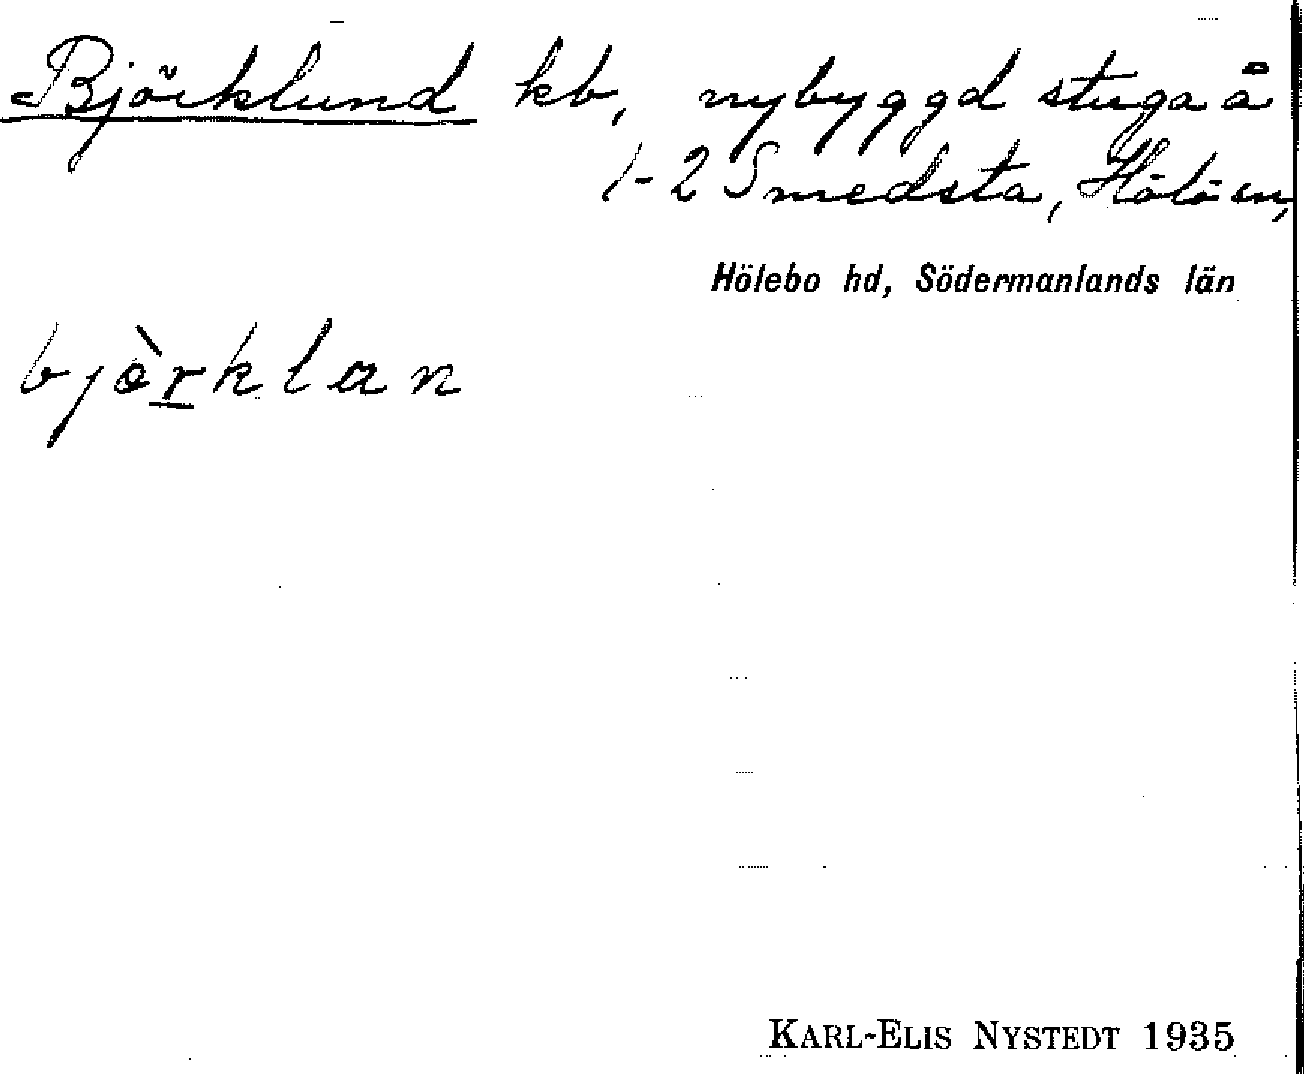 Björklund kb, nybyggd stuga å
1-2 Smedsta, Hölö sn,
Hölebo hd, Södermanlands län
bjòrklan
KARL-ELIS NYSTEDT 1935